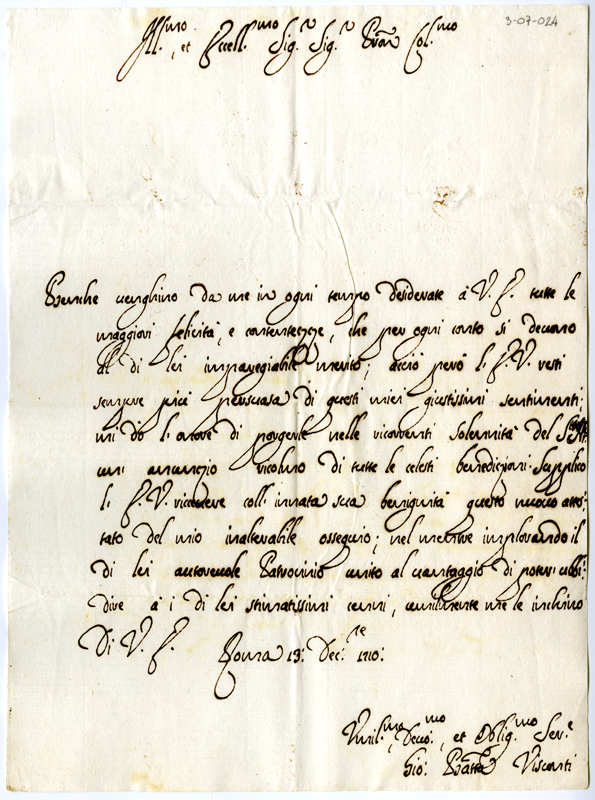 3-07-024
Ill.mo, et Eccell.mo Sig.r Sig.r Pron Col.mo
Benche venghino da me in ogni tempo desiderate à V. E. tutte le
maggiori felicità, e contentezze, che per ogni conto si devono
al di lei impareggiabile merito; acciò però l. E. V. resti
sempre più persuasa di questi miei giustissimi sentimenti;
mi dò l. onore di porgerle nelle vicorrenti solennità del S.
un annunzio ricolmo di tutte le celesti benedizioni. Supplico
l. E. V. ricevere coll. innata sua benignità questo nuovo attes-
tato del mio inalterabile ossequio; nel mentre implorando il
di lei autorevole Patrocinio unito al vantaggio di poter ubbi-
dire à i di lei stimatissimi cenni, umilmente me le inchino
Di V. E. Roma 13: Dec.re 1710:
Umil.mo, Devo.mo, et Oblig.mo Ser.e
Gio: Batta Visconti